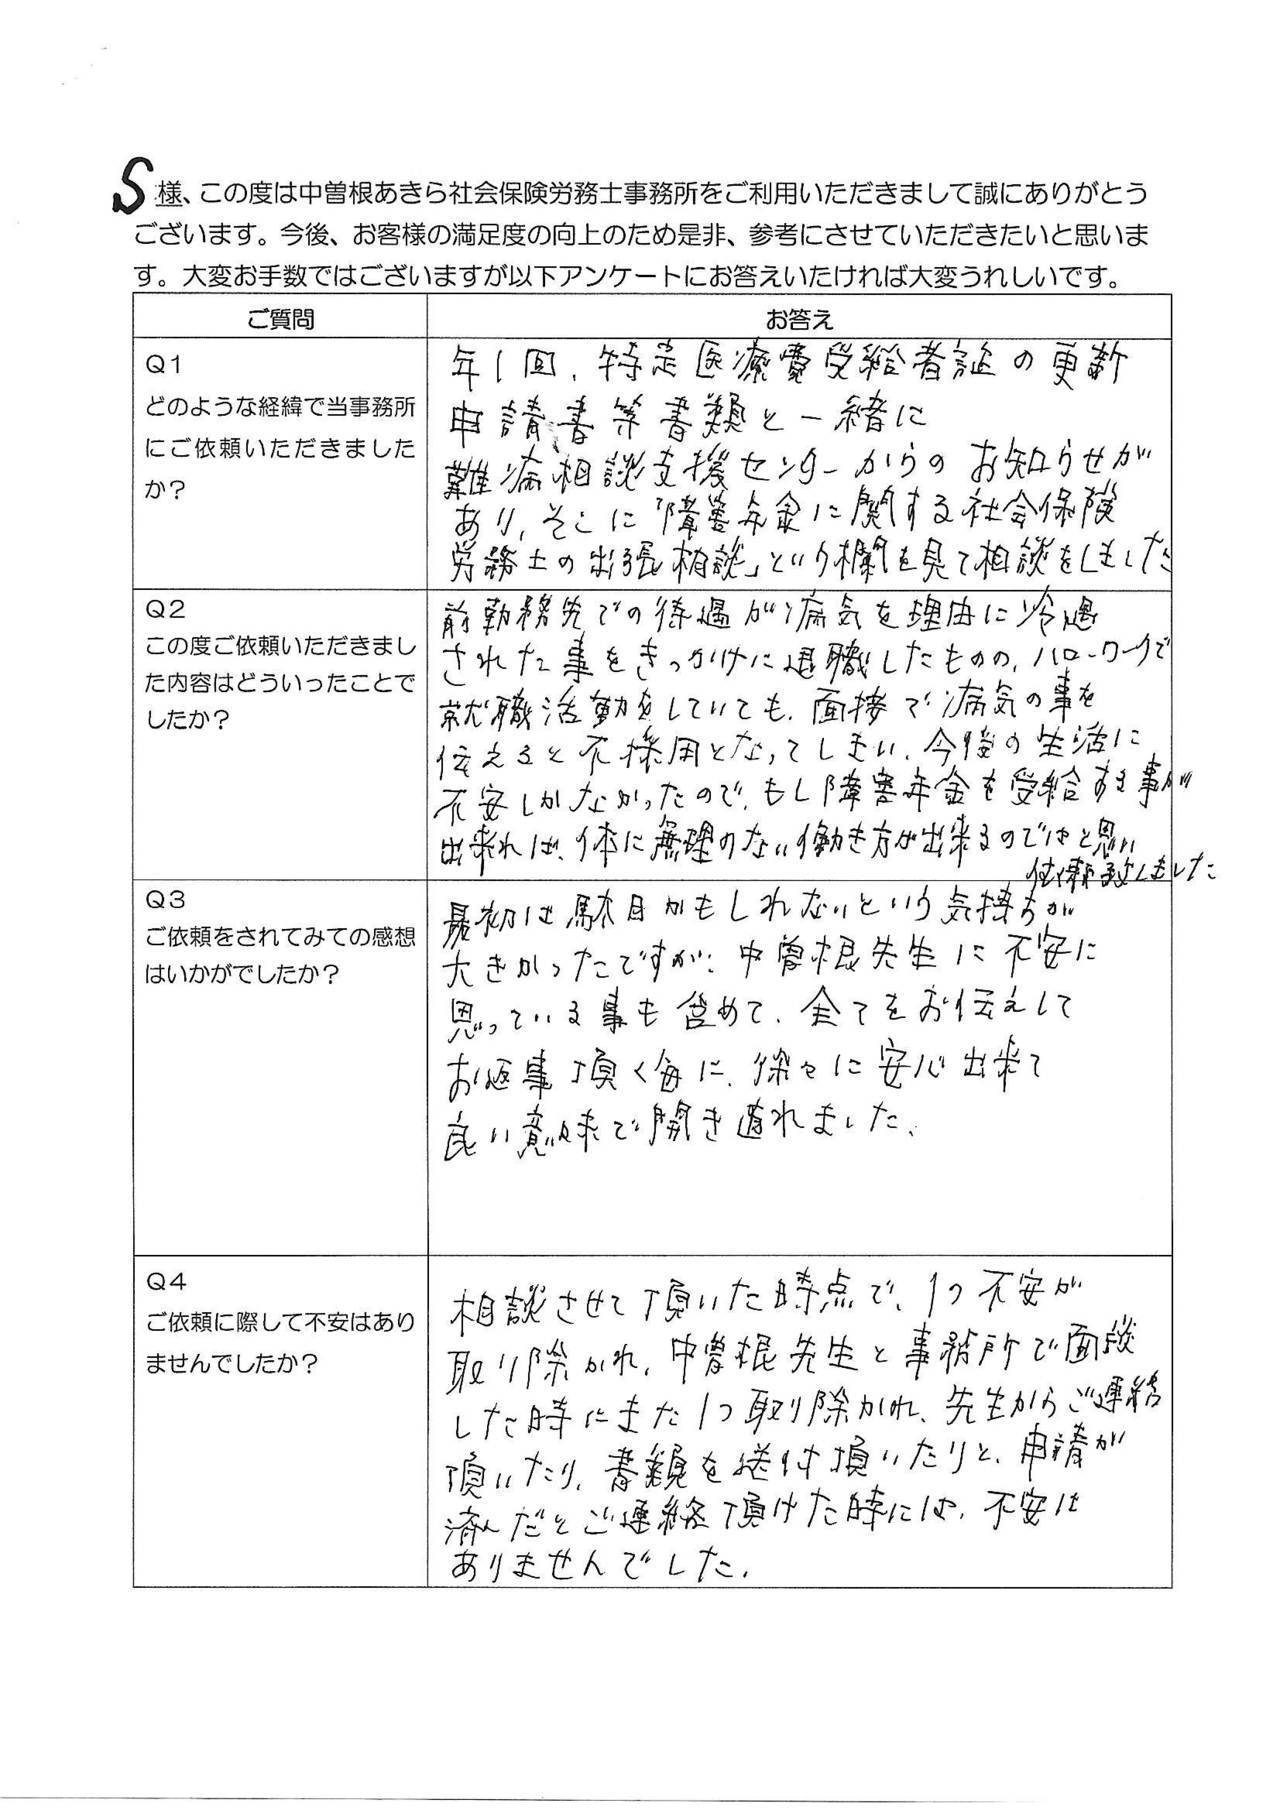 S様、この度は中曽根あきら社会保険労務士事務所をご利用いただきまして誠にありがとう
ございます。今後、お客様の満足度の向上のため是非、参考にさせていただきたいと思いま
す。大変お手数ではございますが以下アンケートにお答えいたければ大変うれしいです。
ご質問
お答え
Q1
どのような経緯で当事務所
にご依頼いただきました
か？
年1回、特定医療費受給者証の更新
申請書等書類と一緒に
難病相談支援センターからのお知らせが
あり、そこに「障害年金に関する社会保険
労務士の出張相談」という欄を見て相談をしました
Q2
この度ご依頼いただきまし
た内容はどういったことで
したか？
前勤務先での待遇が病気を理由に冷遇
された事をきっかけに退職したものの、ハローワークで
就職活動をしていても、面接で病気の事を
伝えると不採用となってしまい、今後の生活に
不安しかなかったので、もし障害年金を受給する事が
出来れば、体に無理のない働き方が出来るのではと思い
依頼致しました
Q3
ご依頼をされてみての感想
はいかがでしたか？
最初は駄目かもしれないという気持ちが
大きかったですが、中曽根先生に不安に
思っている事も含めて、全てをお伝えして
お返事頂く毎に、徐々に安心出来て
良い意味で開き直れました、
Q4
ご依頼に際して不安はあり
ませんでしたか？
相談させて頂いた時点で、1つ不安が
取り除かれ、中曽根先生と事務所で面談
した時にまた1つ取り除かれ、先生からご連絡
頂いたり、書類を送付頂いたりと、申請が
済んだとご連絡頂けた時には、不安は
ありませんでした.